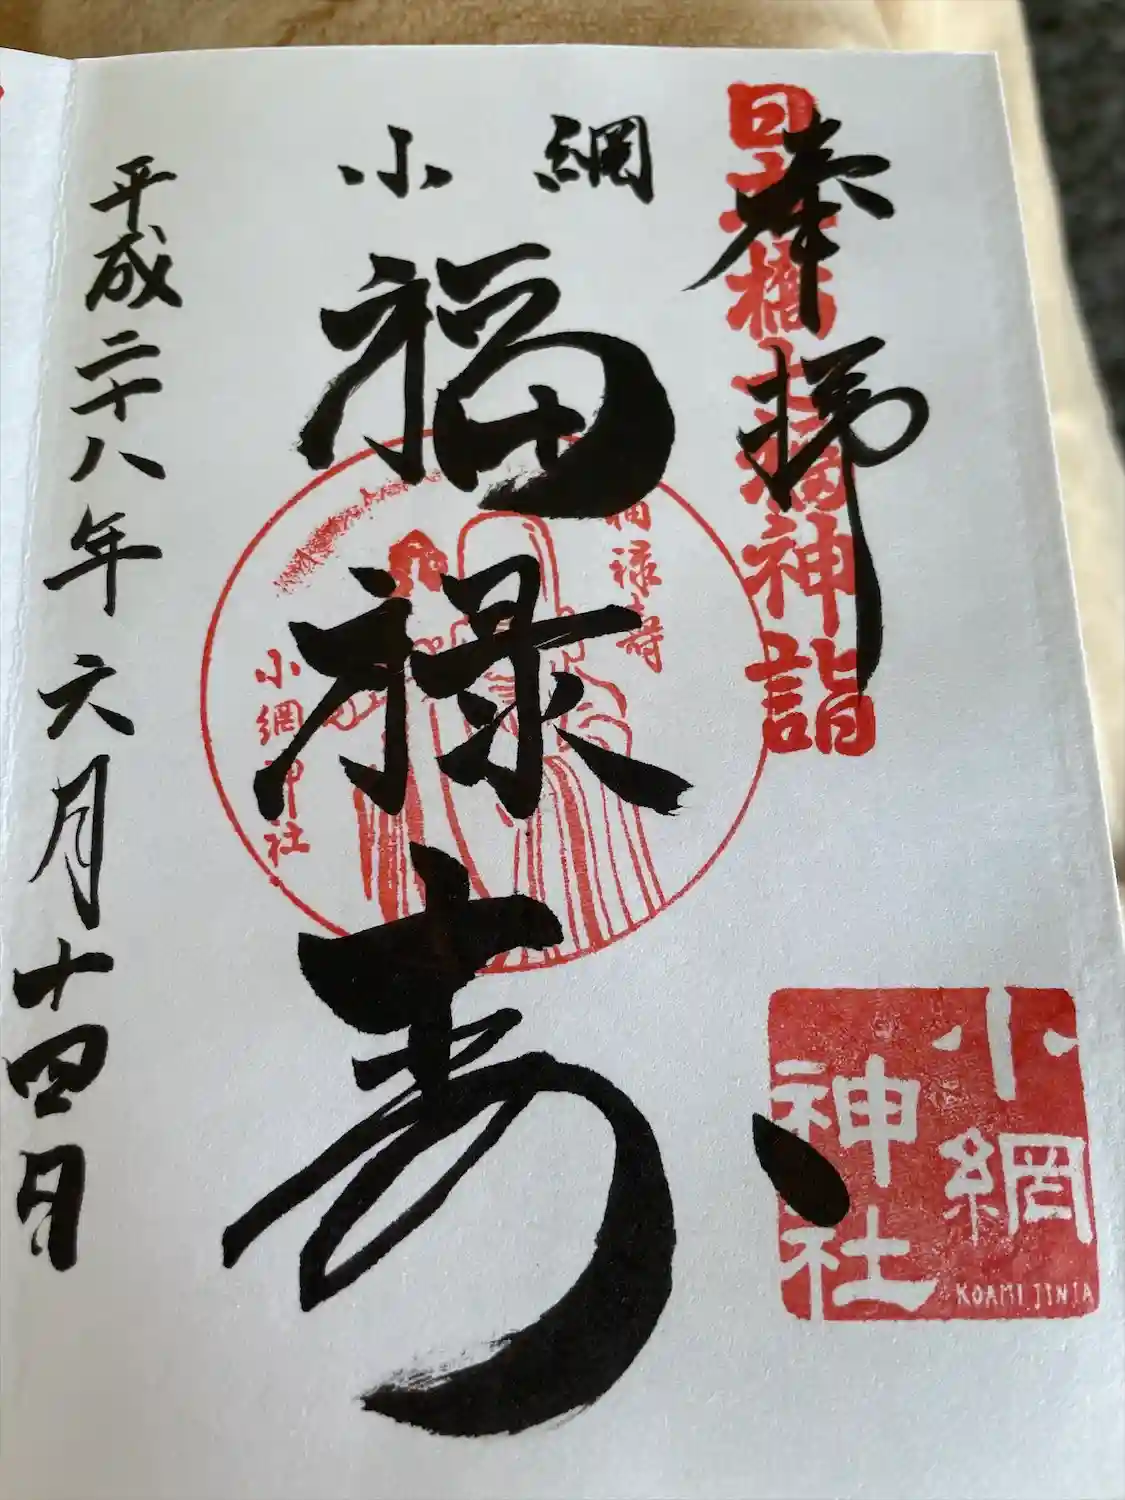 奉拝
日本橋七福神詣
小網
福禄寿
福禄寿
小網神社
小網神社
KOAMI JINJA
平成二十八年六月十四日